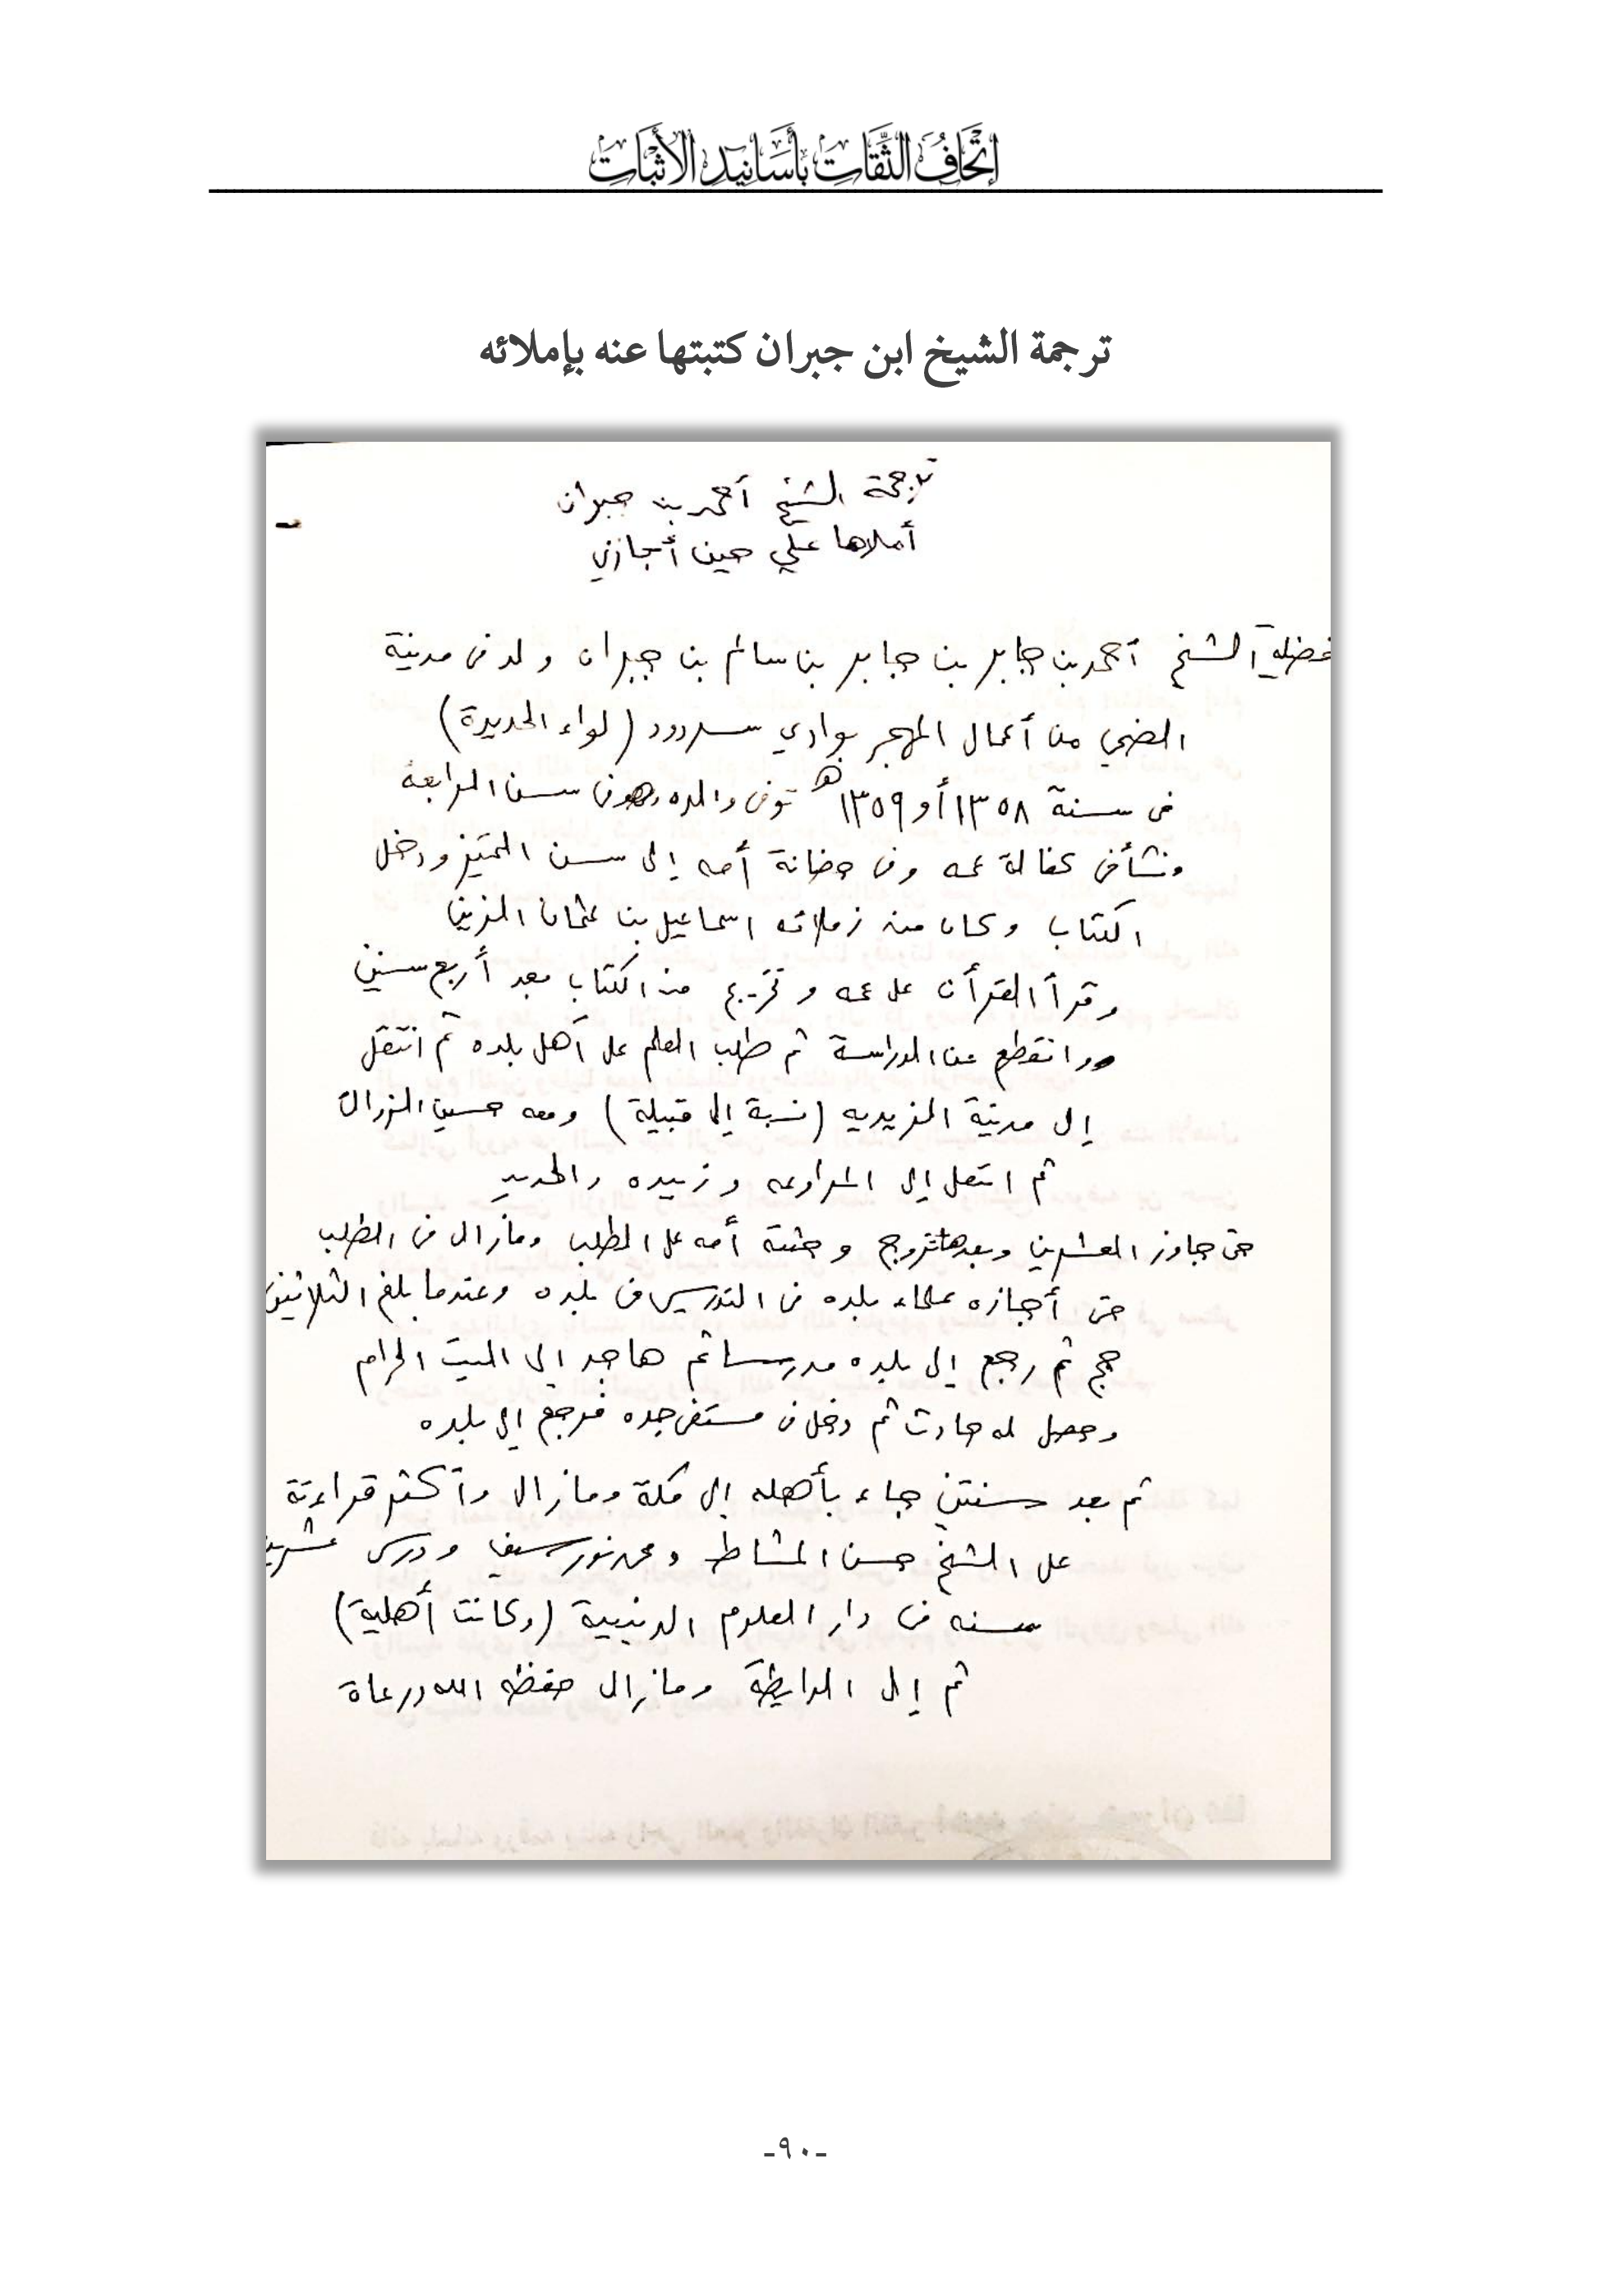 إتحاف الثقات بأسانيد الأثبات
ترجمة الشيخ ابن جبران كتبتها عنه بإملائه
ترجمة الشيخ أحمد بن جبران
أملاها علي حين أجازني
فضيلة الشيخ أحمد بن جابر بن جابر بن سالم بن جبران ولد في مدينة
الضحي من أعمال المهجر بوادي سردود (لواء الحديدة)
في سنة ١٣٥٨ أو ١٣٥٩هـ توفى والده وهو في سن الرابعة
ونشأ في كفالة عمه وفي حضانة أمه إلى سن التميز ودخل
الكتاب وكان من زملائه اسماعيل بن عثمان الزين
وقرأ القرأن على عمه وتخرج من الكتاب بعد أربع سنين
وانقطع عن الدراسة ثم طلب العلم على أهل بلده ثم انتقل
إلى مدينة الزيديه (نسبة إلى قبيلة) ومعه حسين الزواك
ثم انتقل إلى المراوعه وزبيده والحديد
حتى جاوز العشرين وبعدها تزوج وحثته أمه على الطلب ومازال في الطلب
حتى أجازه علماء بلده في التدريس في بلده وعندما بلغ الثلاثين
حج ثم رجع إلى بلده مدرسا ثم هاجر إلى البيت الحرام
وحصل له حادث ثم دخل في مستشفى جده فرجع إلى بلده
ثم بعد سنتين جاء بأهله إلى مكة ومازال وأكثر قراءته
على الشيخ حسن المشاط ومحمد نور سيف ودرس عشرين
سنه في دار العلوم الدينية (وكانت أهلية)
ثم إلى الرابطة ومازال حفظه الله ورعاة
-٩٠-